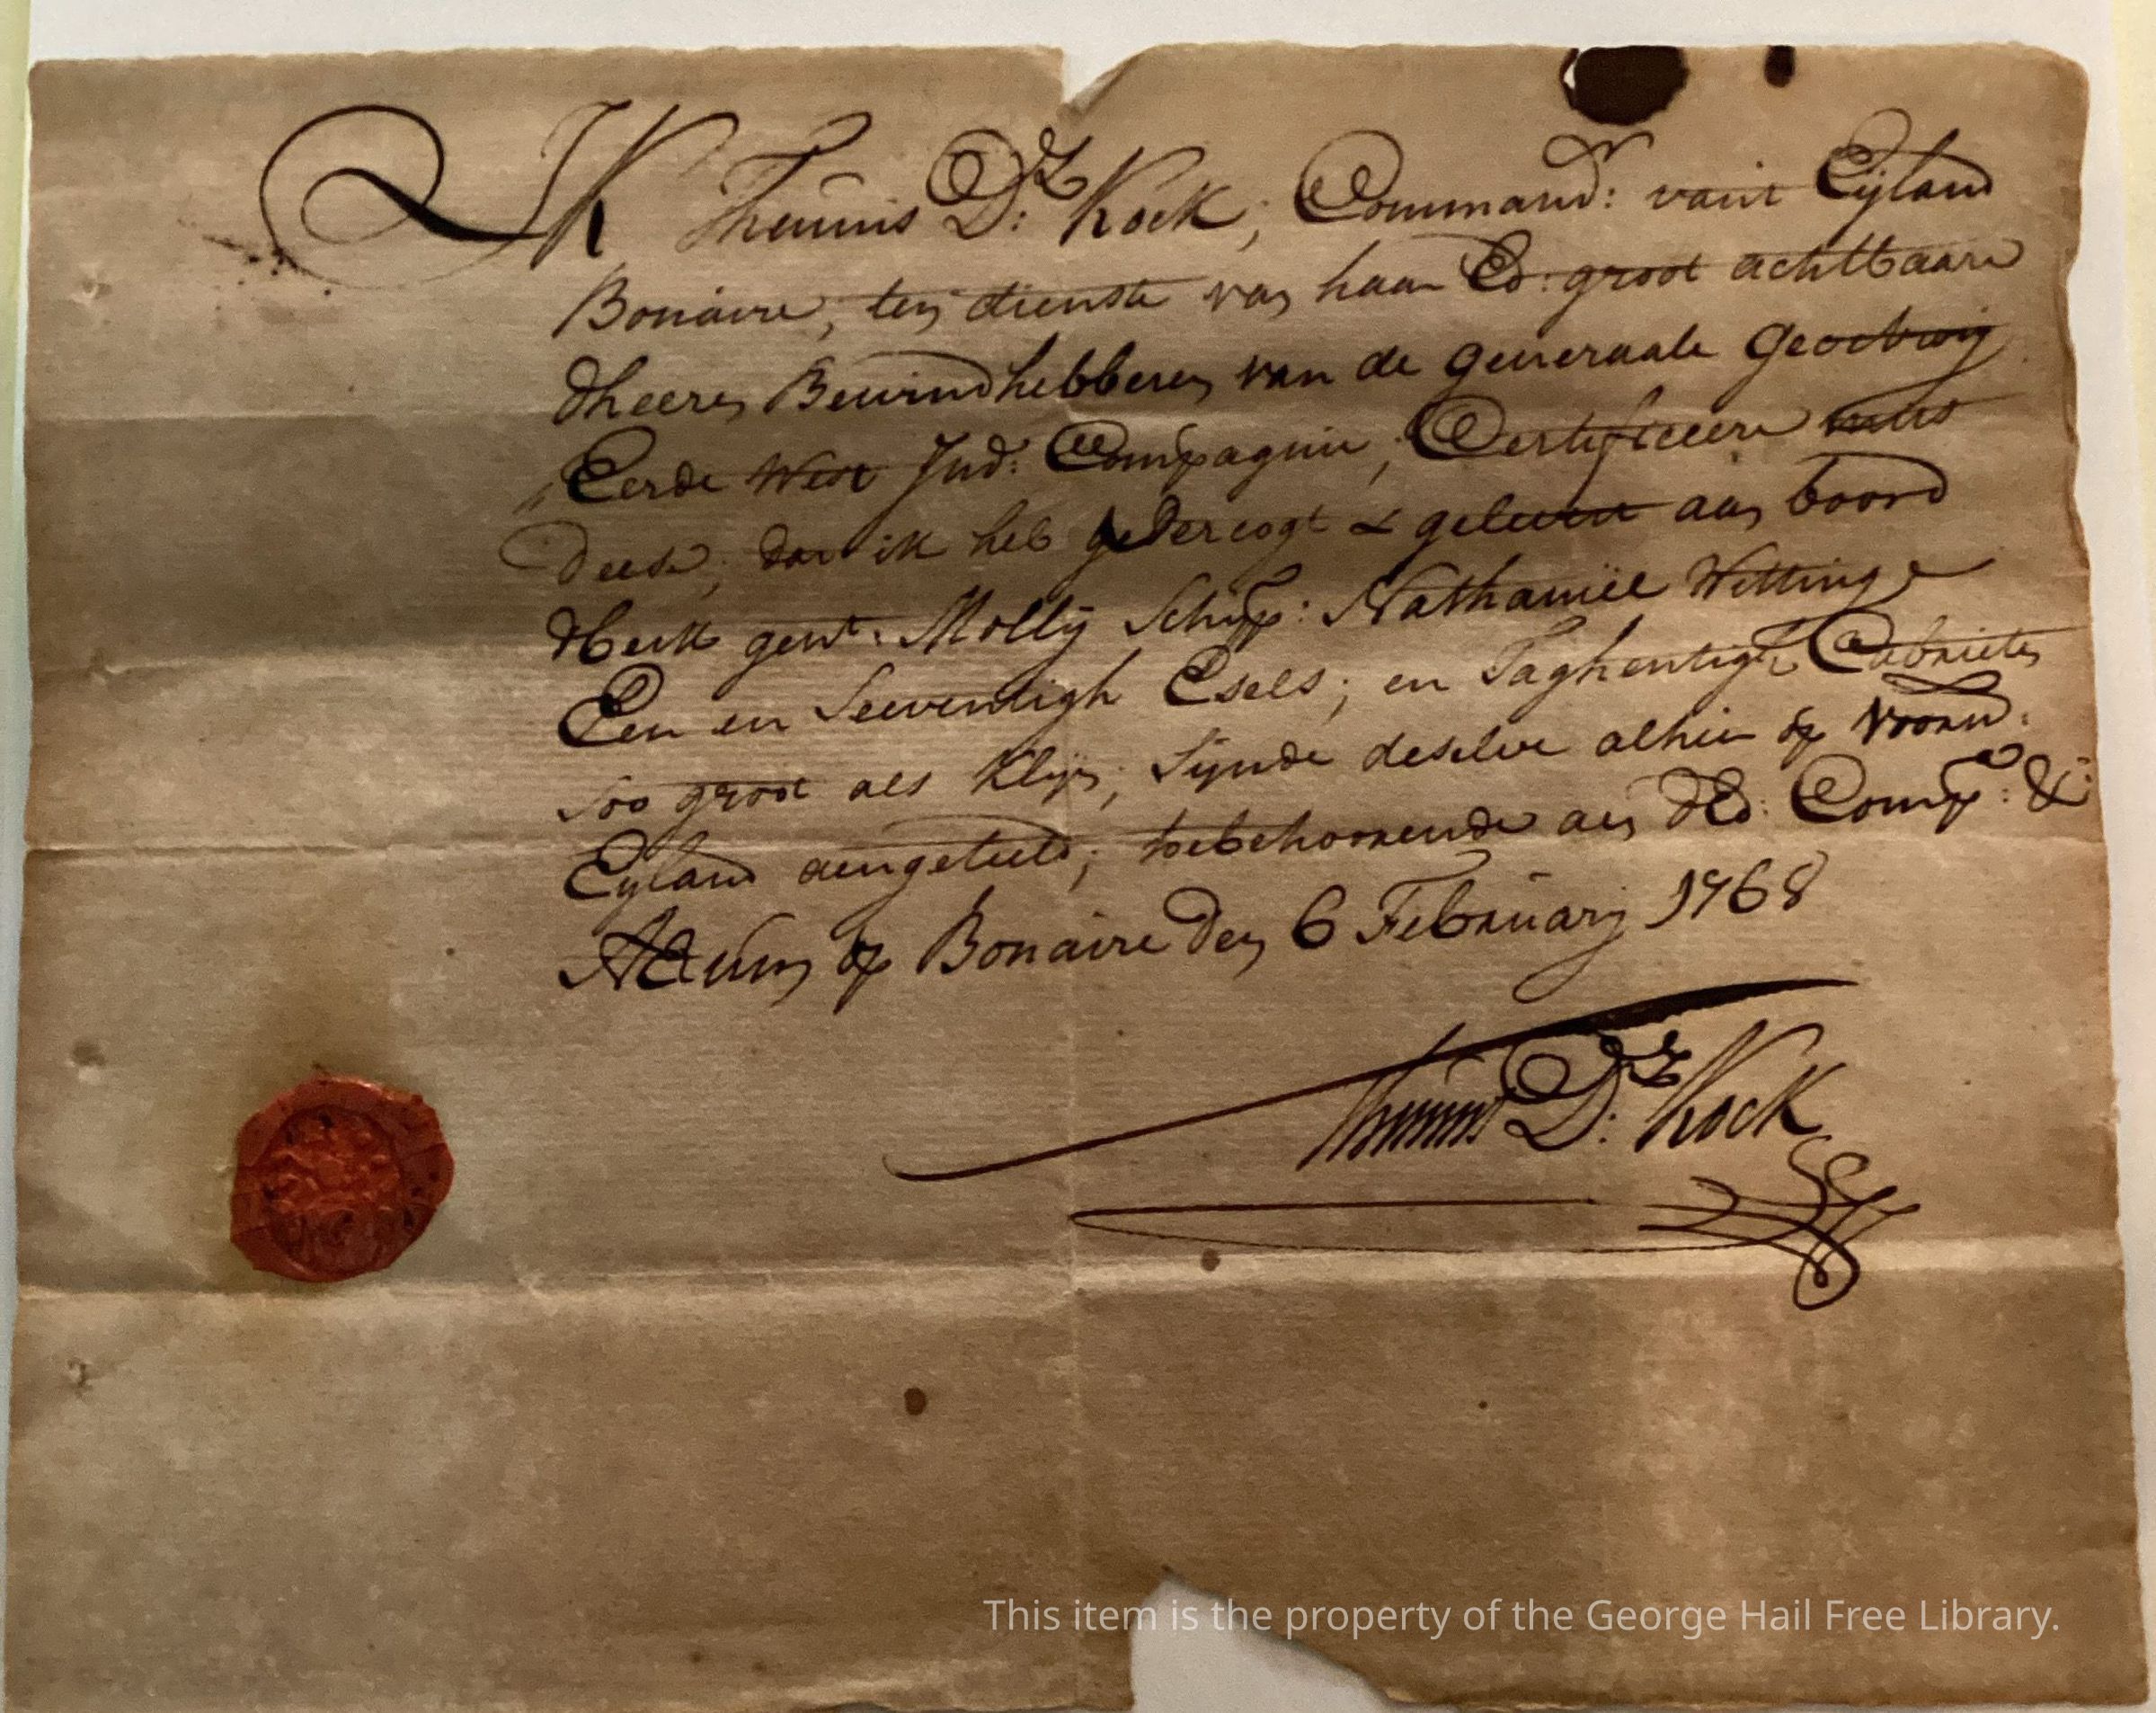 IK Theunis D:rz Kock, Command:r van't Eyland
Bonaire, ten dienste van haar Ed: groot achtbaare
dheeren Bewindhebberen van de generaale Geoctroij
Eerde West Ind: Compagnie, Certificeere mits
deese, dat ik heb & gelevert aan boord
dbark gent: Molly Schipp: Nathaniël Wittinge
Een en Seeventigh Esels; en Taghentigh Cabrieten
soo groot als klijn, sijnde deselve alhier op voornd:
Eyland aengeteelt, toebehoorende aen dEd: Comp:e &:
Actum op Bonaire den 6 February 1768
Theunis D:rz Kock
This item is the property of the George Hail Free Library.